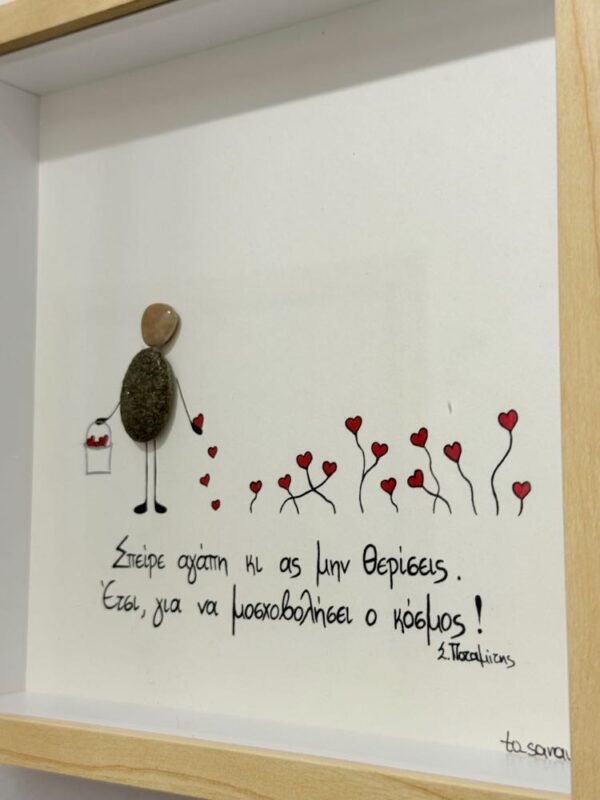 Σπείρε αγάπη κι ας μην θερίσεις.
Έτσι, για να μοσχοβολήσει ο κόσμος!
Σ. Ποταμίτης